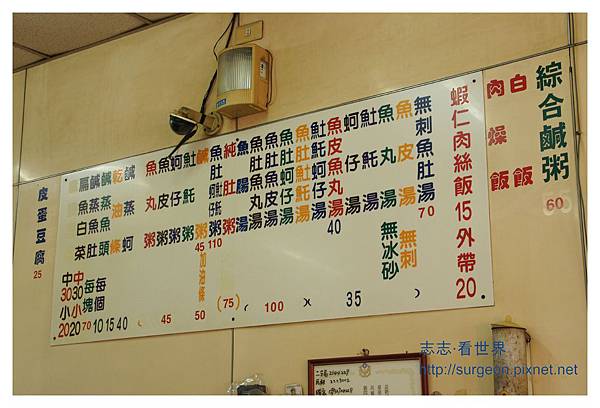 綜合鹹粥
60
白飯
肉燥飯
蝦仁肉絲飯15外帶20
無刺魚肚湯
70
魚皮湯
無刺
魚丸湯
無冰砂
肚魠湯
蚵仔湯
35
魚皮魚丸湯
40
肚魠蚵仔湯
魚肚魠湯
魚肚蚵湯
魚肚皮湯
魚肚魚湯
(100)
魚腸湯
純肚粥
(75)
魚肚蚵肚仔魠粥
110
鹹粥
45
加油條
50
肚魠粥
蚵仔粥
魚皮粥
魚丸粥
(45
鹹蒸蚵
40
乾油條
每個
15
鹹蒸魚頭
每塊
10
鹹蒸魚肚
70
中30小20
扁魚白菜
中30小20
皮蛋豆腐
25
志志·看世界
http://surgeon.pixnet.net